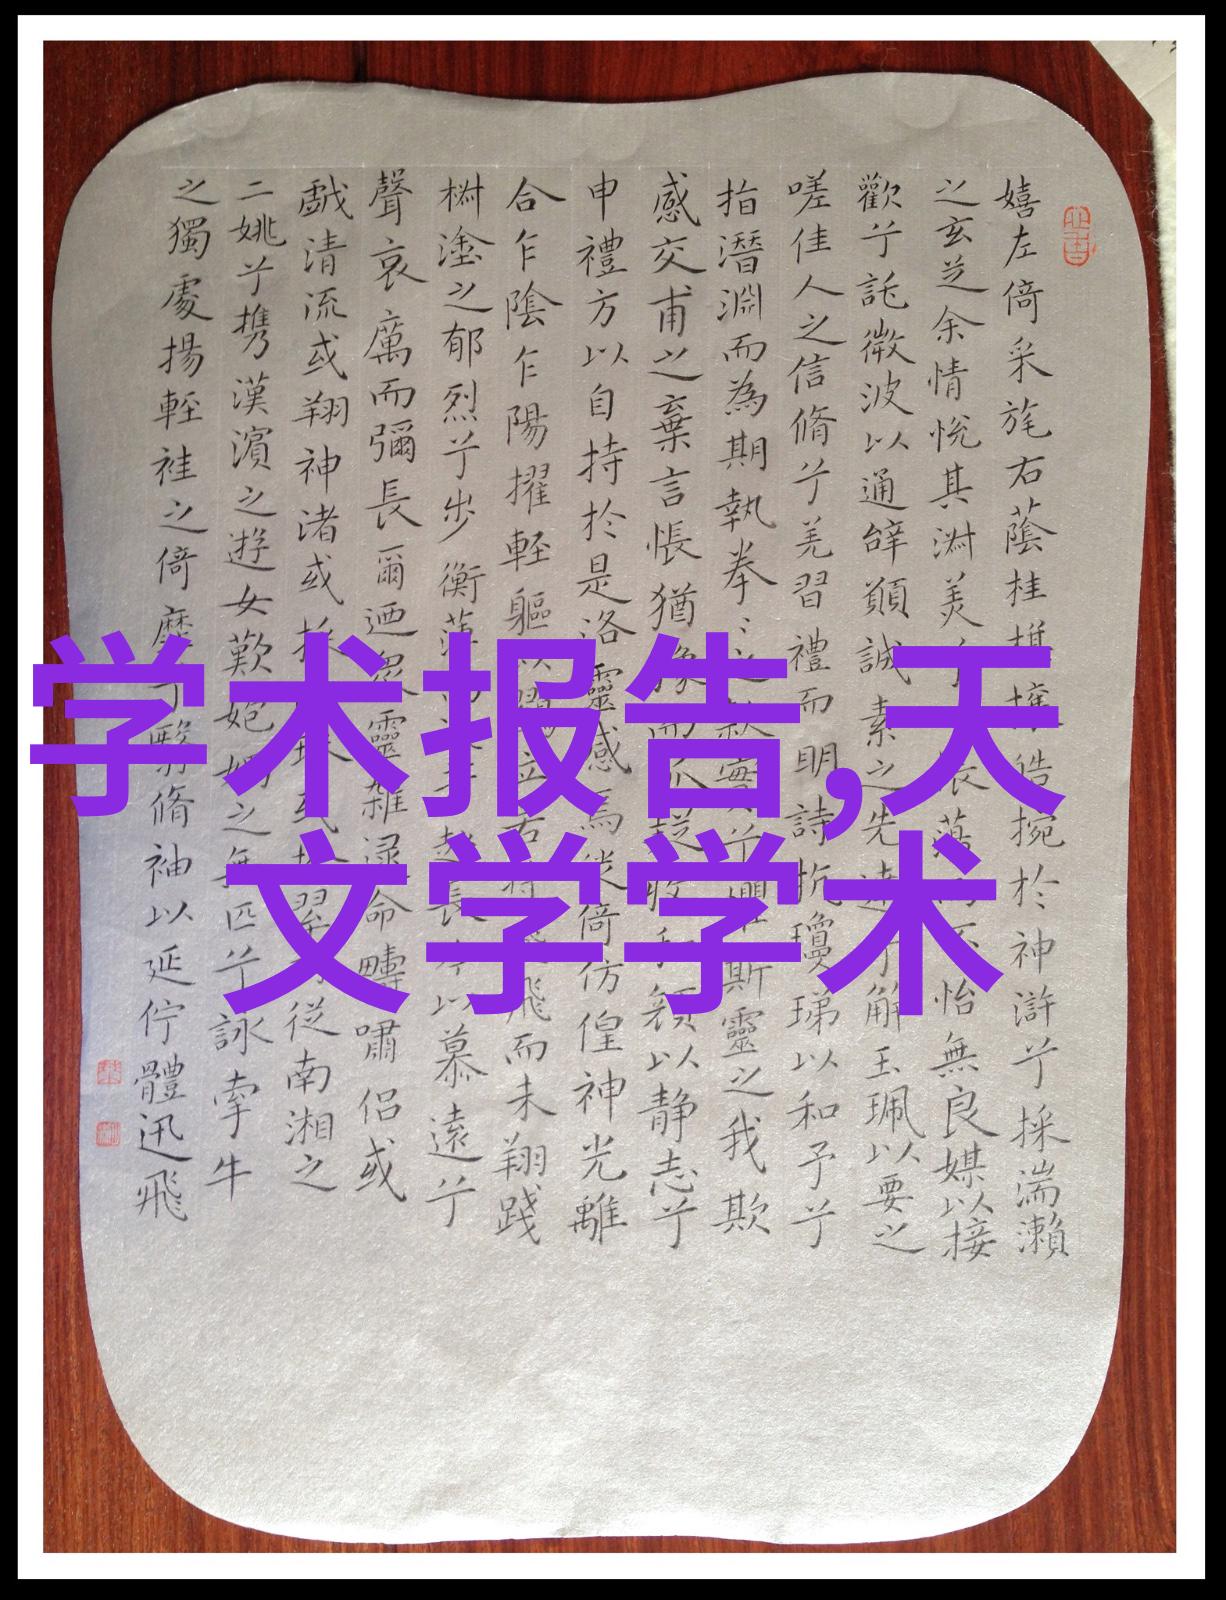 嬉左倚采旄右蔭桂旗攘皓捥於神滸兮採湍瀨
之玄芝余情悅其淑美兮良薄而不怡無良媒以接
歡兮託微波以通辭願誠素之先達兮解玉珮以要之
嗟佳人之信脩兮羌習禮而明詩抗瓊珶以和予兮
指潛淵而為期執拳〻之款實兮懼斯靈之我欺
感交甫之棄言悵猶豫而狐疑收和顏以静志兮
申禮方以自持於是洛靈感焉徙倚仿偟神光離
合乍陰乍陽擢軽軀以鶴立若將飛而未翔踐
樹塗之郁烈兮步衡薄而長以慕遠兮
聲哀厲而彌長爾迺眾靈雜遝命疇嘯侶或
戲清流或翔神渚或採或拾翠從南湘之
二姚兮攜漢濱之遊女歎匏媧之無匹兮詠牽牛
之獨處揚軽袿之倚靡兮翳脩袖以延佇體迅飛
学术报告,天
文学学术